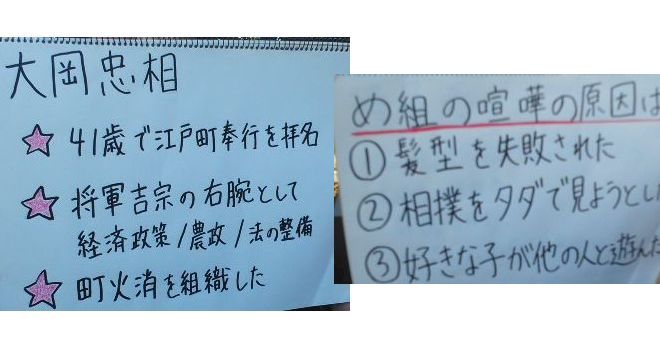 大岡忠相
41歳で江戸町奉行を拝名
将軍吉宗の右腕として
経済政策/農政/法の整備
町火消を組織した
め組の喧嘩の原因は
①髪型を失敗された
②相撲をタダで見ようとし
③好きな子が他の人と遊んだ